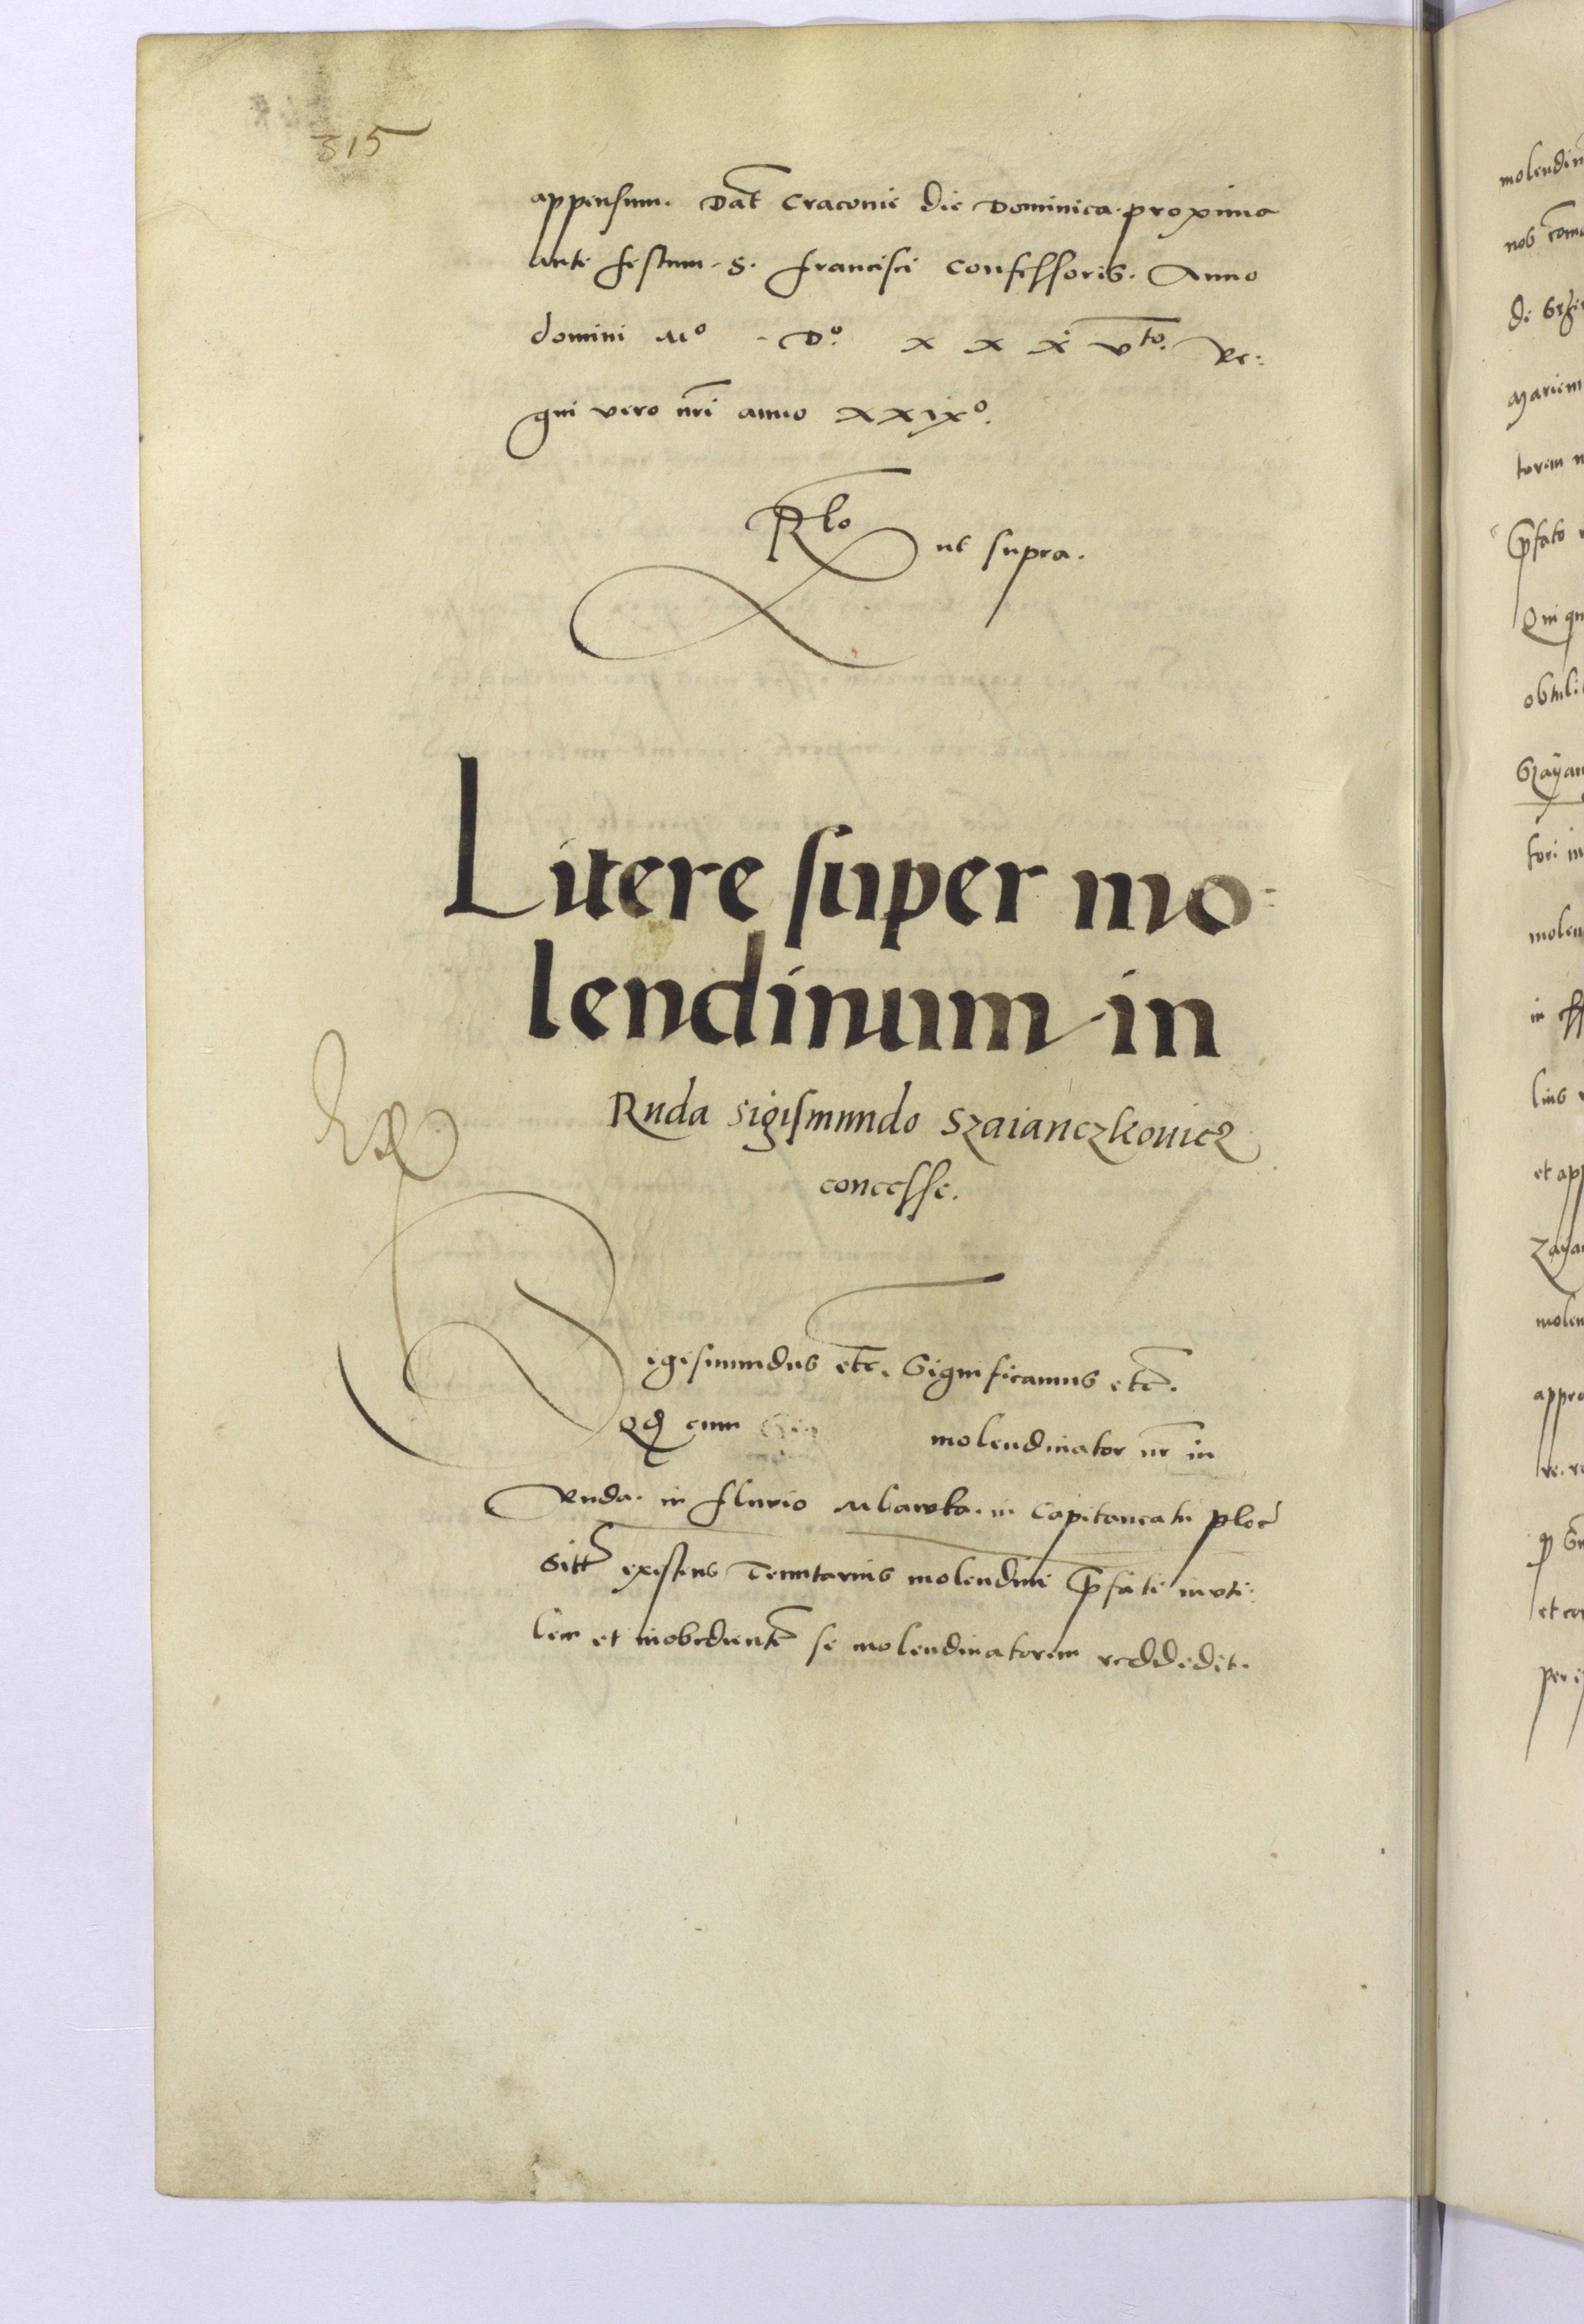 315
appensum. Dat Craconie die Dominica proxima
ante festum S. Francisci confessoris. Anno
domini Mo Do. x x x vto. Re:
gni vero nri anno xxixo.
Rlo ut supra.
Litere super mo:
lendinum in
Ruda Sigismundo Szaianczkovicz
concesse.
Sigismundus etc. Significamus etc.
Qd cum molendinator nr in
Ruda in fluvio Mlawka in Capitaneatu ploc
sitt existens Tenutarius molendini pfati inuti:
lem et inobedientem se molendinatorem reddedit.
molendin
nob
torem
pfato
Qui
obtuli
Szayan
molen
in
lius
et app
Zaya
molen
appro
et
per